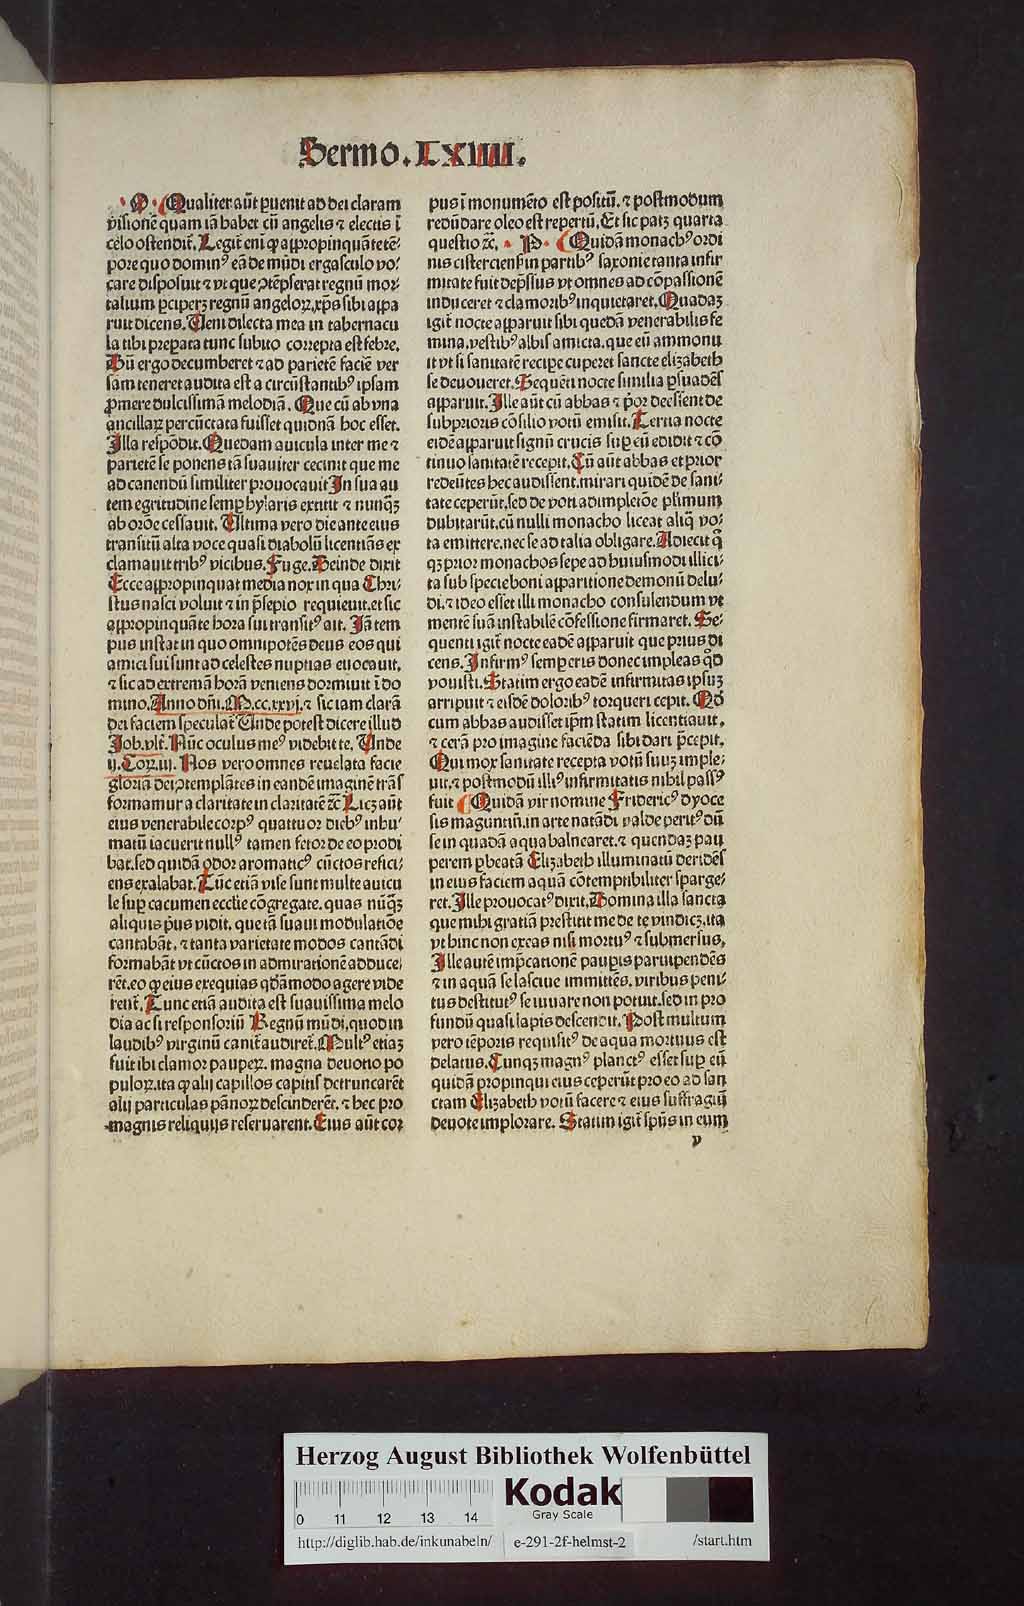 Sermo. LXIIII.
· O · Qualiter aūt ꝑuenit ad dei claram
visionē quam iā habet cū angelis ⁊ electis ī
celo ostendit̄. Legit̄ eni ꝙ appropinquāte tē⸗
pore quo domin⁹ eā de mūdi ergasculo vo⸗
care disposuit ⁊ vt que ꝯtēpserat regnū mor⸗
talium ꝑciperꝫ regnū angeloꝝ, xp̄s sibi appa
ruit dicens. Veni dilecta mea in tabernacu
la tibi preparata tunc subito correpta est febre.
Dū ergo decumberet ⁊ ad parietē faciē ver
sam teneret audita est a circūstantib⁹ ipsam
ꝓmere dulcissimā melodiā. Que cū ab vna
ancillaꝝ percūctata fuisset quidnā hoc esset.
Illa respōdit. Quedam auicula inter me ⁊
parietē se ponens tā suauiter cecinit que me
ad canendū similiter prouocauit In sua au
tem egritudine semꝑ hylaris extitit ⁊ nunqꝫ
ab orōe cessauit. Ultima vero die ante eius
transitū alta voce quasi diabolū licentiās ex
clamauit trib⁹ vicibus. Fuge. Deinde dixit
Ecce appropinquat media nox in qua Chri⸗
stus nasci voluit ⁊ in p̄sepio requieuit. et sic
appropinquāte hora sui transit⁹ ait. Jā tem
pus instat in quo omnipotēs deus eos qui
amici sui sunt ad celestes nuptias euocauit,
⁊ sic ad extremā horā veniens dormiuit ī do
mino. Anno dn̄i. M.cc.xxvj. ⁊ sic iam clarā
dei faciem speculat̄ Unde potest dicere illud
Job. vlt̄. Nūc oculus me⁹ videbit te. Unde
ij. Coꝝ. iij. Nos vero omnes reuelata facie
gloriā dei ꝯtemplātes in eandē imaginē trās
formamur a claritate in claritatē ⁊c̄ Licꝫ aūt
eius venerabile corp⁹ quattuor dieb⁹ inhu⸗
matū iacuerit null⁹ tamen fetor de eo prodi
bat. sed quidā odor aromatic⁹ cūctos refici⸗
ens exalabat. Tūc etiā vise sunt multe auicu
le suꝑ cacumen ecclie cōgregate. quas nūqꝫ
aliquis p̄us vidit. que tā suaui modulatiōe
cantabāt. ⁊ tanta varietate modos cantādi
formabāt vt cūctos in admirationē adduce⸗
rēt. eo ꝙ eius exequias qd̄amodo agere vide
rent̄. Tunc etiā audita est suauissima melo
dia ac si responsoriū Regnū mūdi. quod in
laudib⁹ virginū canit̄ audiret̄. Mult⁹ etiaꝫ
fuit ibi clamor paupeꝝ. magna deuotio po
puloꝝ. ita ꝙ alij capillos capitis detruncarēt
alij particulas pānoꝝ descinderēt. ⁊ hec pro
magnis reliquijs reseruarent. Eius aūt cor
pus ī monumēto est positū. ⁊ postmodum
redūdare oleo est repertū. Et sic patꝫ quarta
questio ⁊c̄. · P · Quidā monach⁹ ordi
nis cisterciensꝭ in partib⁹ saxonie tanta infir
mitate fuit dep̄ssus vt omnes ad cōpassionē
induceret ⁊ clamorib⁹ inquietaret. Quadaꝫ
igit̄ nocte apparuit sibi quedā venerabilis fe
mina. vestib⁹ albis amicta. que eū ammonu
it vt si sanitatē recipe cuperet sancte elizabeth
se deuoueret. Sequēti nocte similia ꝑsuadēs
apparuit. Ille aūt cū abbas ⁊ p̄or deessent de
subprioris cōsilio votū emisit. Tertia nocte
eidē apparuit signū crucis suꝑ eū edidit ⁊ cō
tinuo sanitatē recepit. Cū aūt abbas et prior
redeūtes hec audissent. mirari quidē de sani⸗
tate ceperūt. sed de voti adimpletōe pl̄imum
dubitarūt. cū nulli monacho liceat aliq̄ vo⸗
ta emittere. nec se ad talia obligare. Adiecit q̄
qꝫ prior monachos sepe ad huiusmodi illici⸗
ta sub specie boni apparitione demonū delu⸗
di. ⁊ ideo esset illi monacho consulendum vt
mentē suā instabilē cōfessione firmaret. Se⸗
quenti igit̄ nocte eadē apparuit que prius di
cens. Infirm⁹ semper eris donec impleas qd̄
vouisti. Statim ergo eadē infirmitas ipsuꝫ
arripuit ⁊ eisdē dolorib⁹ torqueri cepit. Qd̄
cum abbas audisset ip̄m statim licentiauit.
⁊ cerā pro imagine faciēda sibi dari p̄cepit.
Qui mox sanitate recepta votū suuꝫ imple⸗
uit. ⁊ postmodū illi⁹ infirmitatis nihil pass⁹
fuit Quidā vir nomine Frideric⁹ dyoce
sis maguntiū. in arte natādi valde perit⁹ dū
se in quadā aqua balnearet. ⁊ quendaꝫ pau
perem ꝑ beatā Elizabeth illuminatū deridēs
in eius faciem aquā cōtemptibiliter sparge⸗
ret. Ille prouocat⁹ dixit. Domina illa sancta
que mihi gratiā prestitit me de te vindicꝫ. ita
vt hinc non exeas nisi mortu⁹ ⁊ submersus.
Ille autē imp̄cationē pauꝑis paruipendēs
⁊ in aquā se lasciue immittēs. viribus peni⸗
tus destitut⁹ se iuuare non potuit. sed in pro
fundū quasi lapis descendit. Post multum
vero tēporis requisit⁹ de aqua mortuus est
delatus. Cunqꝫ magn⁹ planct⁹ esset suꝑ eū
quidā propinqui eius ceperūt pro eo ad san
ctam Elizabeth votū facere ⁊ eius suffragiū
deuote implorare. Statim igit̄ spūs in eum
v
Herzog August Bibliothek Wolfenbüttel
0 11 12 13 14
Kodak
Gray Scale
http://diglib.hab.de/inkunabeln/ e-291-2f-helmst-2 /start.htm